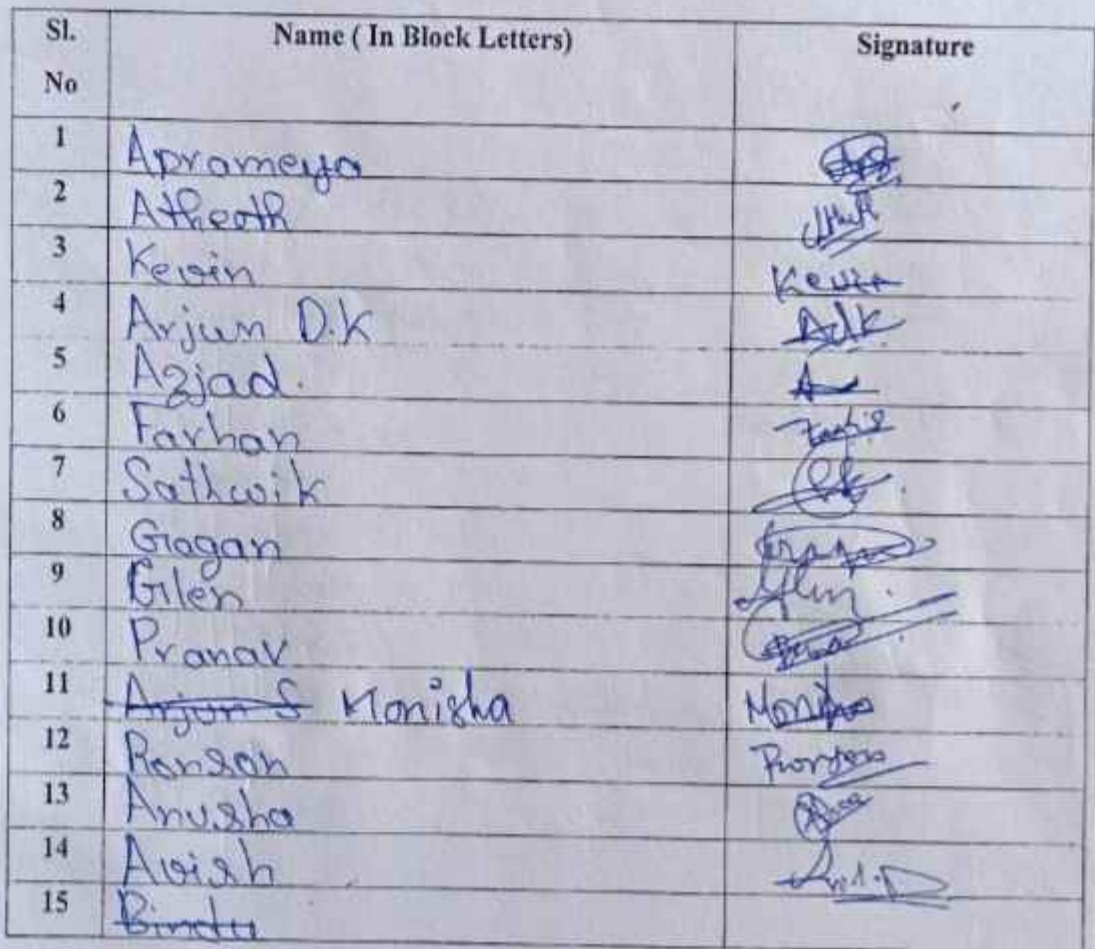 Sl. No Name ( In Block Letters) Signature
1 Aprameya
2 Atheoth
3 Kevin Kevin
4 Arjun D.K Adk
5 Azjad. A
6 Farhan
7 Sathwik
8 Gagan
9 Glen Glen
10 Pranav
11 Arjun S Monisha Monisha
12 Ronson Ronson
13 Anusha
14 Avish
15 Bindu